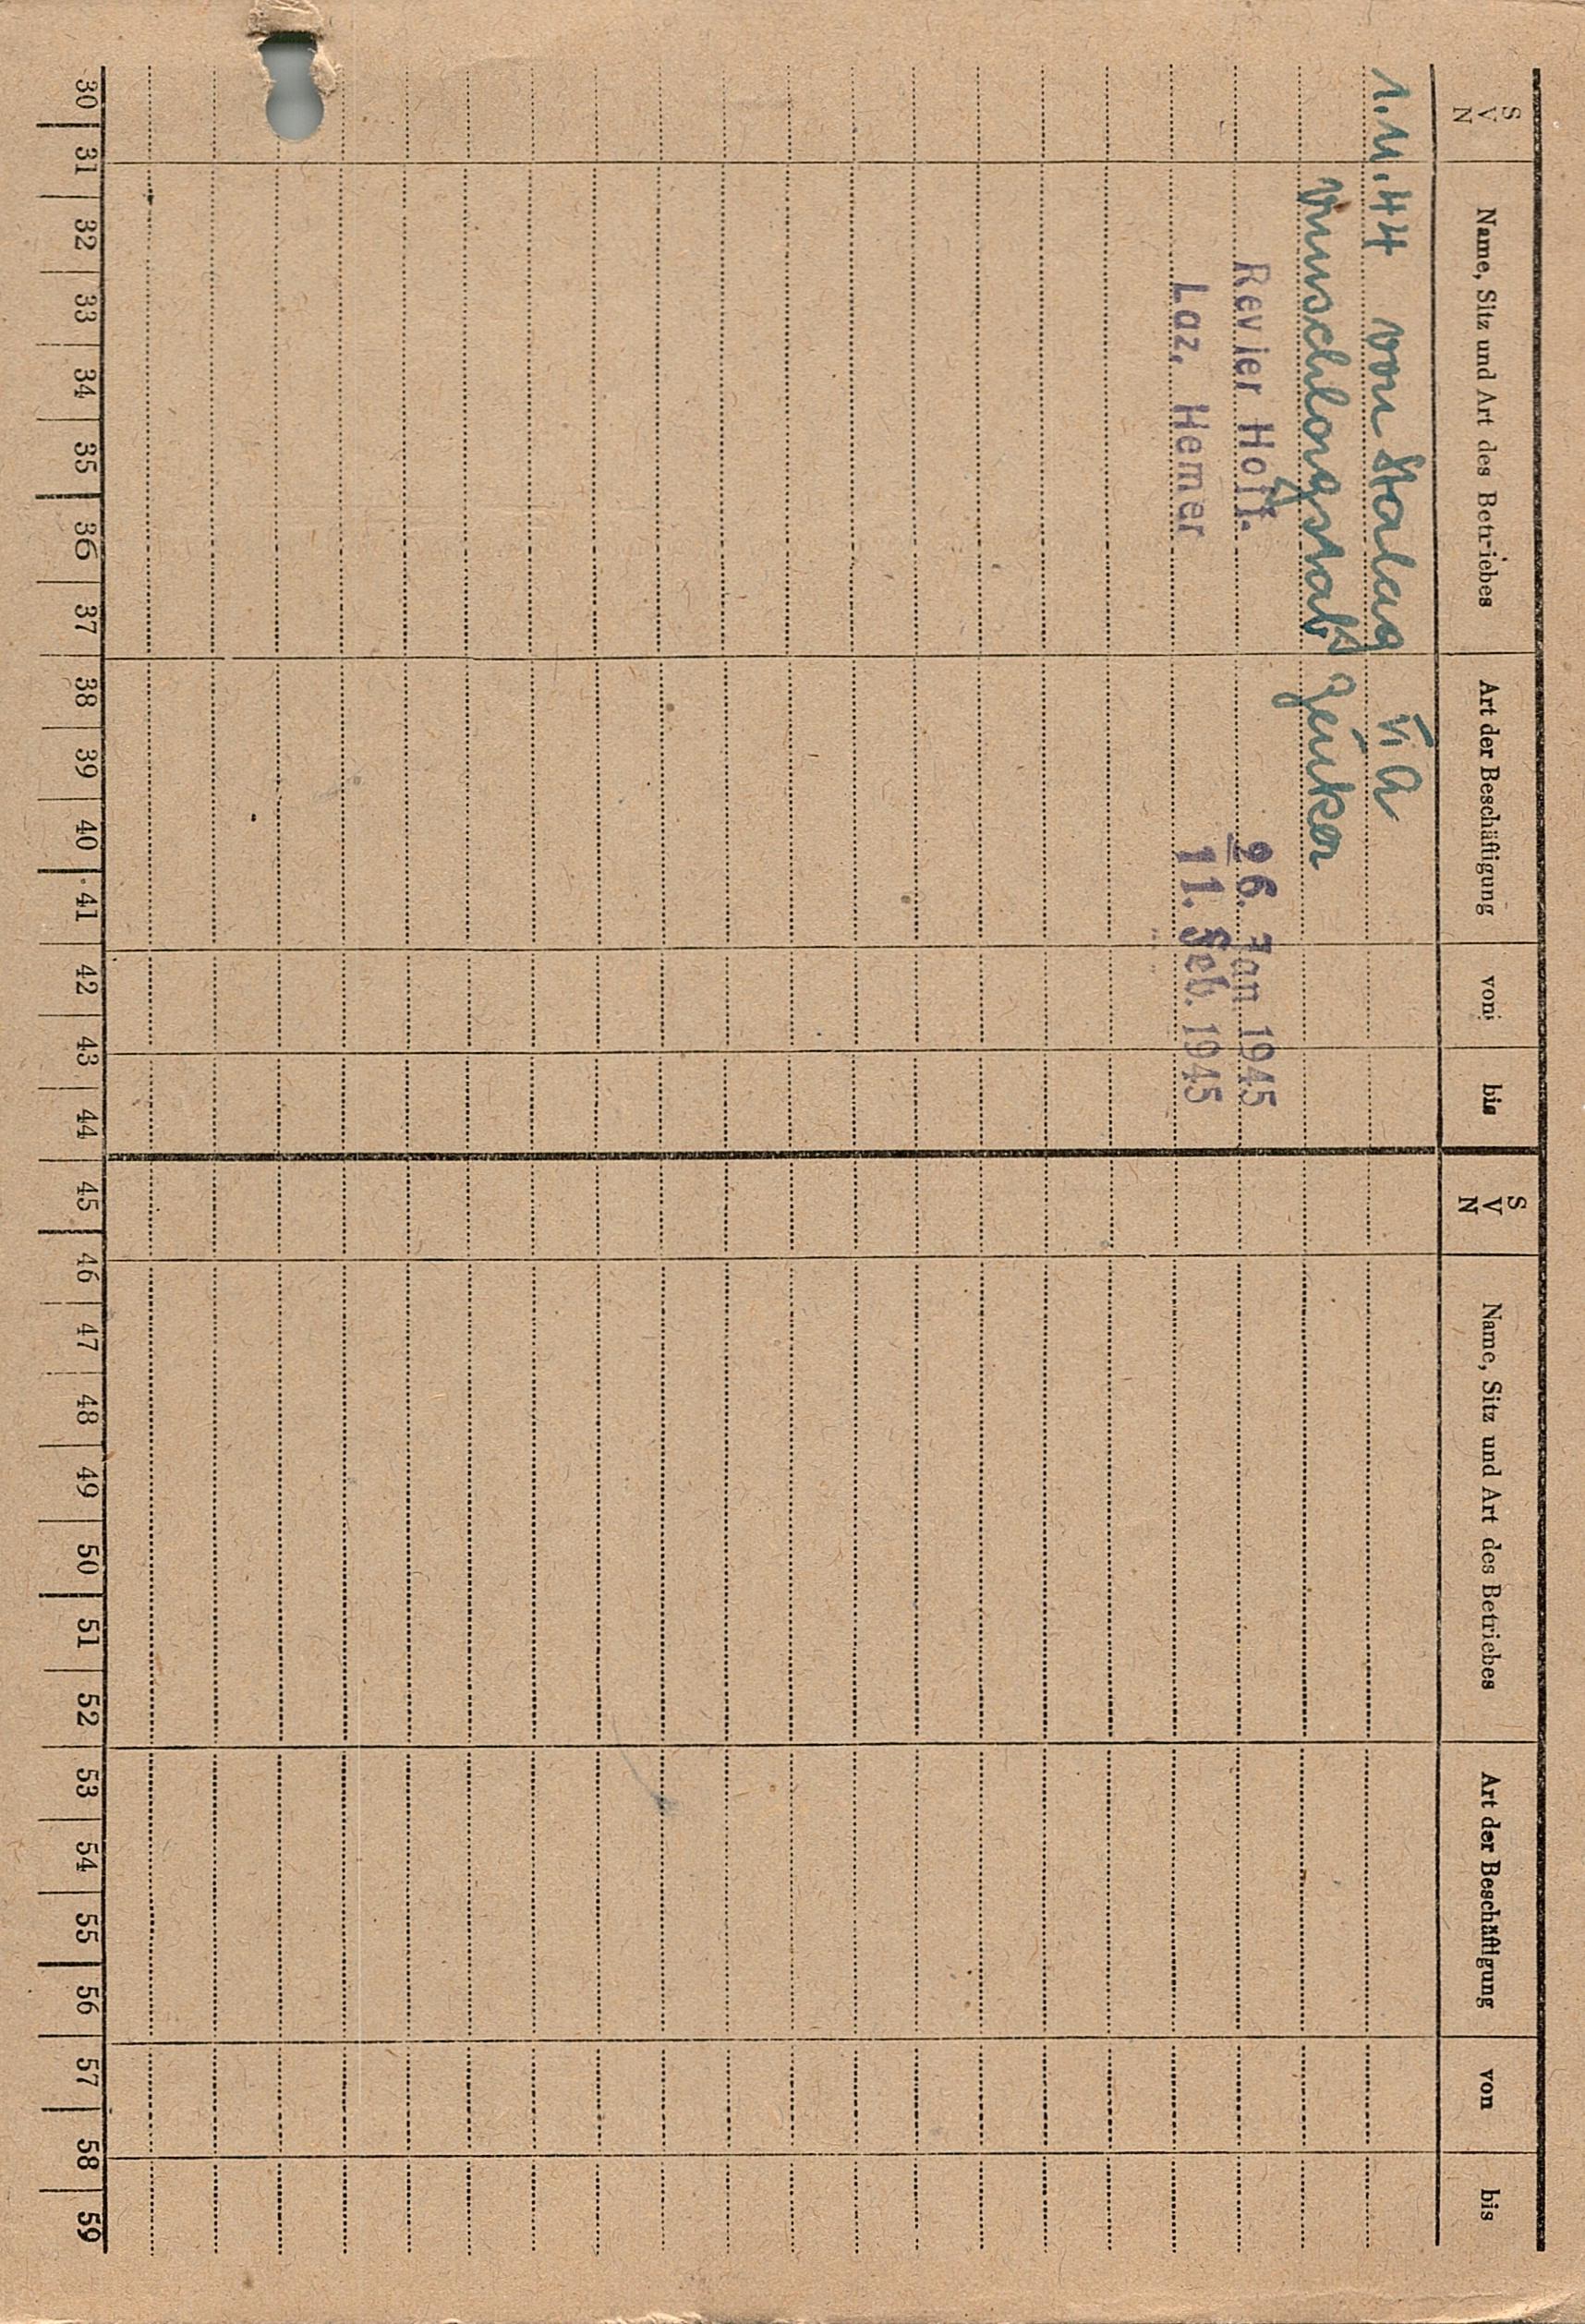 S V N Name, Sitz und Art des Betriebes Art der Beschäftigung von bis S V N Name, Sitz und Art des Betriebes Art der Beschäftigung von bis
1.11.44 von Stalag VI A
Revier Hoff. 26. Jan 1945
Laz. Hemer 11. Feb. 1945
30 31 32 33 34 35 36 37 38 39 40 41 42 43 44 45 46 47 48 49 50 51 52 53 54 55 56 57 58 59